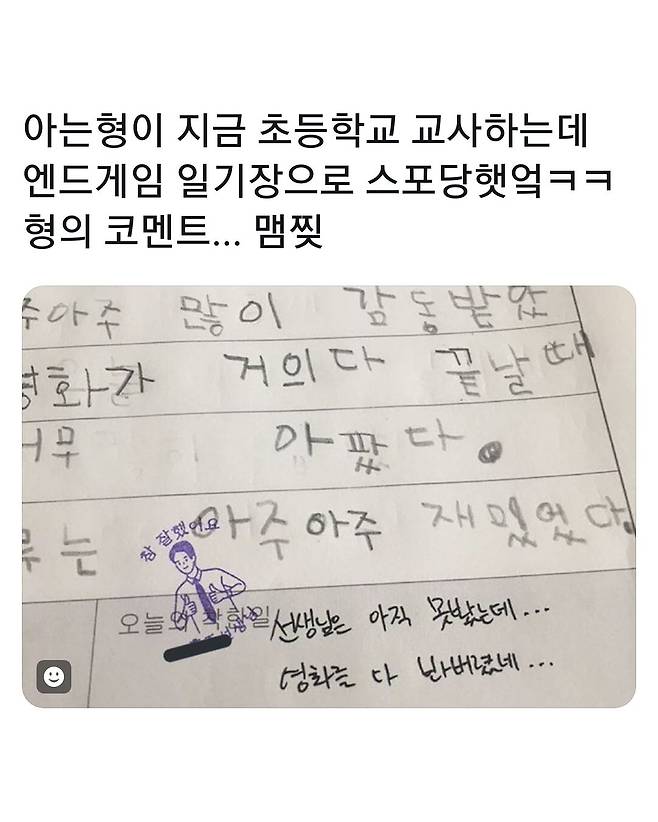 아는형이 지금 초등학교 교사하는데
엔드게임 일기장으로 스포당햇엌ㅋㅋ
형의 코멘트... 맴찢
주아주 많이 감동받았
영화가 거의다 끝날때
너무 아팠다.
류는 아주아주 재밌었다.
참 잘했어요
오늘의 착한일
선생님은 아직 못봤는데...
영화를 다 봐버렸네...